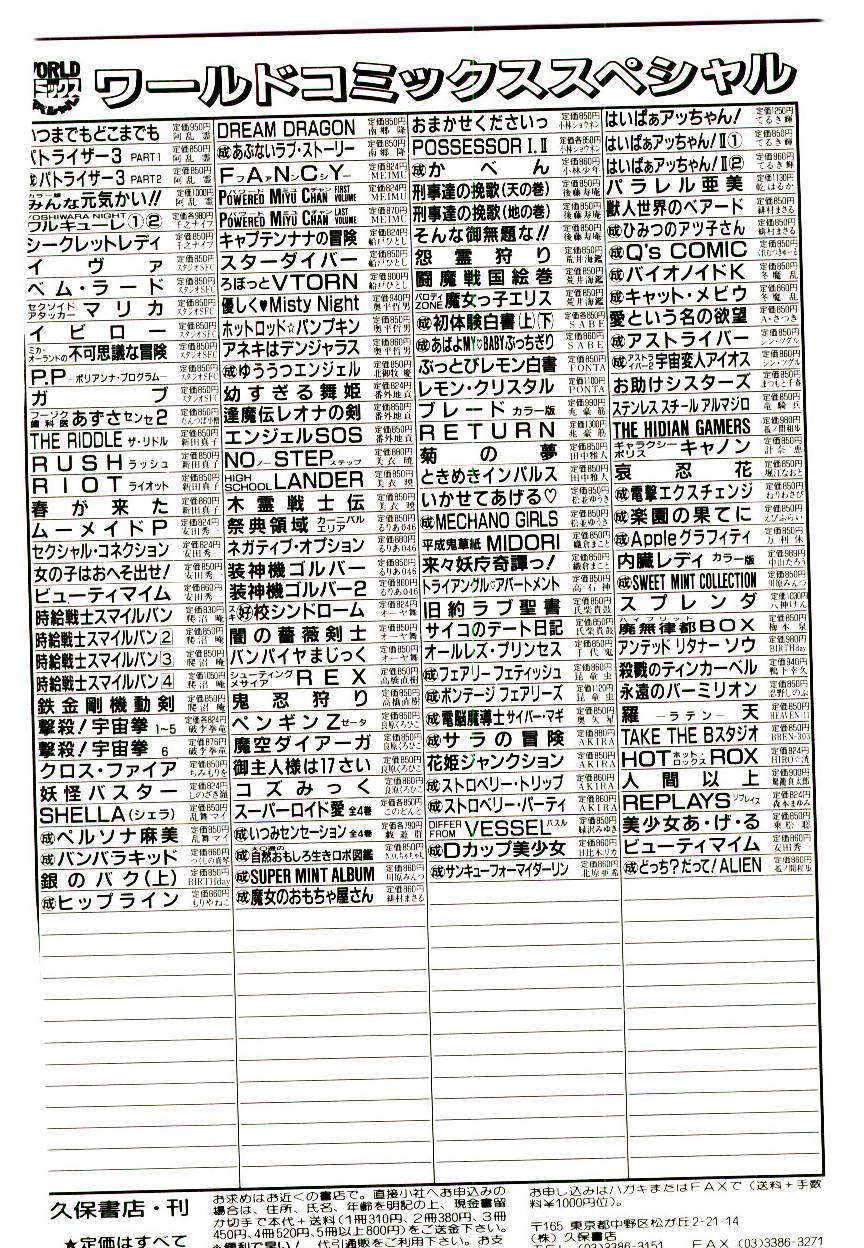 ワールドコミックススペシャル
いつまでもどこまでも 定価950円 阿乱霊
バトライザー3 PART1 定価850円 阿乱霊
成バトライザー3 PART2 定価850円 阿乱霊
みんな元気かい!! 定価1000円 阿乱霊
YOSHIWARA NIGHT ワルキューレ①② 定価各980円 千之ナイフ
シークレットレディ 定価850円 千之ナイフ
イヴァ 定価850円 スタジオSFC
ベム・ラード 定価850円 スタジオSFC
セクソイドアタッカー マリカ 定価850円 スタジオSFC
イビロー 定価850円 スタジオSFC
ミカ・オーランドの不可思議な冒険 定価850円 スタジオSFC
P.P −ポリアンナ・プログラム− 定価850円 スタジオSFC
ガブ 定価850円
フーゾク歯科医 あずさセンセ2 定価850円
THE RIDDLE ザ・リドル 定価850円 新田真子
RUSH ラッシュ 定価850円 新田真子
RIOT ライオット 定価850円 新田真子
春が来た 定価860円 新田真子
ムーメイドP 定価824円 安田秀一
セクシャル・コネクション 定価824円 安田秀一
女の子はおへそ出せ! 定価850円 安田秀一
ビューティマイム 定価860円 安田秀一
時給戦士スマイルバン 定価830円 爬沼庵
時給戦士スマイルバン2 定価850円 爬沼庵
時給戦士スマイルバン3 定価850円 爬沼庵
時給戦士スマイルバン4 定価1050円 爬沼庵
鉄金剛機動剣 定価850円 爬沼庵
撃殺!宇宙拳 1~5 定価各824円 破李拳竜
撃殺!宇宙拳 6 定価876円 破李拳竜
クロス・ファイア 定価850円 ちみもりを
妖怪バスター 定価824円 しのざき嶺
SHELLA(シェラ) 定価850円 乱舞マイ
成ペルソナ麻美 定価850円 乱舞マイ
成バンバラキッド 定価860円 つくしの真琴
銀のバク(上) 定価850円 BIRTHday
成ヒップライン 定価860円 もりやねこ
DREAM DRAGON 定価850円 南郷隆
成あぶないラブ・ストーリー 定価850円
FANCY 定価824円 MEIMU
POWERED MIYU CHAN FIRST VOLUME 定価824円 MEIMU
POWERED MIYU CHAN LAST VOLUME 定価870円 MEIMU
キャプテンナナの冒険 定価824円 船戸ひとし
スターダイバー 定価850円 船戸ひとし
ろぼっとVTORN 定価800円 船戸ひとし
優しく♥Misty Night 定価840円 奥平哲男
ホットロッド☆パンプキン 定価850円 奥平哲男
アネキはデンジャラス 定価860円 奥平哲男
成ゆううつエンジェル 定価850円 北御牧慶
幼すぎる舞姫 定価824円 番外地貢
逢魔伝レオナの剣 定価850円 番外地貢
エンジェルSOS 定価850円 番外地貢
NO ノー STEP ステップ 定価860円 美衣暁
HIGH SCHOOL LANDER 定価850円 美衣暁
木霊戦士伝 定価850円 美衣暁
祭典領域 カーニバルエリア 定価850円 るりあ046
ネガティブ・オプション 定価880円 るりあ046
装神機ゴルバー 定価850円 るりあ046
装神機ゴルバー2 定価860円 るりあ046
スキ(好)校シンドローム 定価824円 オーヤ舞
闇の薔薇剣士 定価850円 オーヤ舞
バンパイヤまじっく 定価850円 オーヤ舞
シューティングメサイア REX 定価850円 高橋直樹
鬼忍狩り 定価850円 高橋直樹
ペンギンZ ゼータ 定価850円 良原くろひこ
魔空ダイアーガ 定価850円 良原くろひこ
御主人様は17さい 定価850円 良原くろひこ
コズみっく 定価860円 良原くろひこ
スーパーロイド愛 全4巻 定価各850円 このどんと
成いつみセンセーション 全4巻 定価各790円 戯遊群
成自然おもしろ生きロボ図鑑 定価850円
成SUPER MINT ALBUM 定価860円 川原みんつ
成魔女のおもちゃ屋さん 定価860円 緋村まさる
おまかせくださいっ 定価850円 小林ショウネン
POSSESSOR I.II 定価各850円 小林ショウネン
成かべん 定価860円 小林少年
刑事達の挽歌(天の巻) 定価850円 後藤寿庵
刑事達の挽歌(地の巻) 定価850円 後藤寿庵
そんな御無題な!! 定価860円 後藤寿庵
怨霊狩り 定価850円 荒井海鑑
闘魔戦国絵巻 定価850円 荒井海鑑
パロディZONE魔女っ子エリス 定価860円 荒井海鑑
成初体験白書(上)(下) 定価各850円 SABE
成あばよMY♡BABYぶっちぎり 定価860円 SABE
ぶっとびレモン白書 定価850円 PONTA
レモン・クリスタル 定価1100円 PONTA
ブレード カラー版 定価990円 兆豪筋
RETURN 定価1300円 兆豪筋
菊の夢 定価860円 田中雅人
ときめきインパルス 定価850円 田中雅人
いかせてあげる♡ 定価850円 松並ゆうき
成MECHANO GIRLS 定価850円 松並ゆうき
平成鬼草紙 MIDORI 定価850円 織倉まこと
来々妖斉奇譚っ! 定価860円 織倉まこと
トライアングル♡アパートメント 定価850円 高石神
旧約ラブ聖書 定価850円 氏柴貴龍
サイコのデート日記 定価850円 氏柴貴龍
オールレズ・プリンセス 定価850円 千代鬼
成フェアリーフェティッシュ 定価860円 昆童虫
成ボンデージフェアリーズ 定価1120円 昆童虫
成電脳魔導士サイバー・マギ 定価850円 奥久星
成サラの冒険 定価880円 AKIRA
花姫ジャンクション 定価850円 AKIRA
成ストロベリー・トリップ 定価860円 AKIRA
成ストロベリー・パーティ 定価860円 AKIRA
DIFFER FROM VESSEL バスル 定価850円 城沢みゆき
成Dカップ美少女 定価860円 日比木リカ
成サンキューフォーマイダーリン 定価860円 北原亜希
はいぱぁアッちゃん! 定価1250円 てるき輝
はいぱぁアッちゃん!II① 定価850円 てるき輝
はいぱぁアッちゃん!II② 定価860円 てるき輝
パラレル亜美 定価1130円 乾はるか
獣人世界のベアード 定価850円 緋村まさる
成ひみつのアツ子さん 定価860円 緋村まさる
成Q's COMIC 定価850円
成バイオノイドK 定価860円 冬魔乱
成キャット・メビウ 定価860円 冬魔乱
愛という名の欲望 定価850円 A・さつき
成アストライバー 定価850円 シン・ツグル
成アストライバー2 宇宙変人アイオス 定価860円 シン・ツグル
お助けシスターズ 定価824円 まつもと千春
ステンレス スチール アルマジロ 定価850円 竜騎兵
THE HIDIAN GAMERS 定価980円 狐ノ間和歩
ギャラクシーポリス キャノン 定価850円 計奈恵
哀忍花 定価850円 堀江なおと
成電撃エクスチェンジ 定価850円 ねりわさび
成楽園の果てに 定価850円 えびふらい
成Appleグラフィティ 定価850円 万利休
内臓レディ カラー版 定価989円 中山たろう
成SWEET MINT COLLECTION 定価850円 川原みんつ
スプレンダ 定価1030円 八神けん
ハイブリット 魔無律都BOX 定価850円 梅本泉
アンテッド リタナー ソウ 定価980円 BIRTHday
殺戮のティンカーベル 定価940円 鴨下幸久
永遠のバーミリオン 定価850円 忍野しのぶ
羅−ラテン−天 定価850円 HEAVEN-11
TAKE THE Bスタジオ 定価850円 BREN-303
HOT ホット・ロックス ROX 定価824円 HIRO☆浅
人間以上 定価900円 鷲灘真太郎
REPLAYS リプレイズ 定価824円 森本まゆみ
美少女あ・げ・る 定価850円 東松聡
ビューティマイム 定価860円 安田秀一
成どっち?だって!ALIEN 定価860円 狐ノ間和歩
久保書店・刊
★定価はすべて
お求めはお近くの書店で。直接小社へお申込みの
場合は、住所、氏名、年齢を明記の上、現金書留
か切手で本代+送料(1冊310円、2冊380円、3冊
450円、4冊520円、5冊以上800円)をご送金下さい。
※便利で早い! 代引通販をご利用下さい。お支
お申し込みはハガキまたはFAXで(送料+手数
料¥1000円位)。
〒165 東京都中野区松が丘2-21-14
(株)久保書店
TEL (03)3386-3151 FAX (03)3386-3271